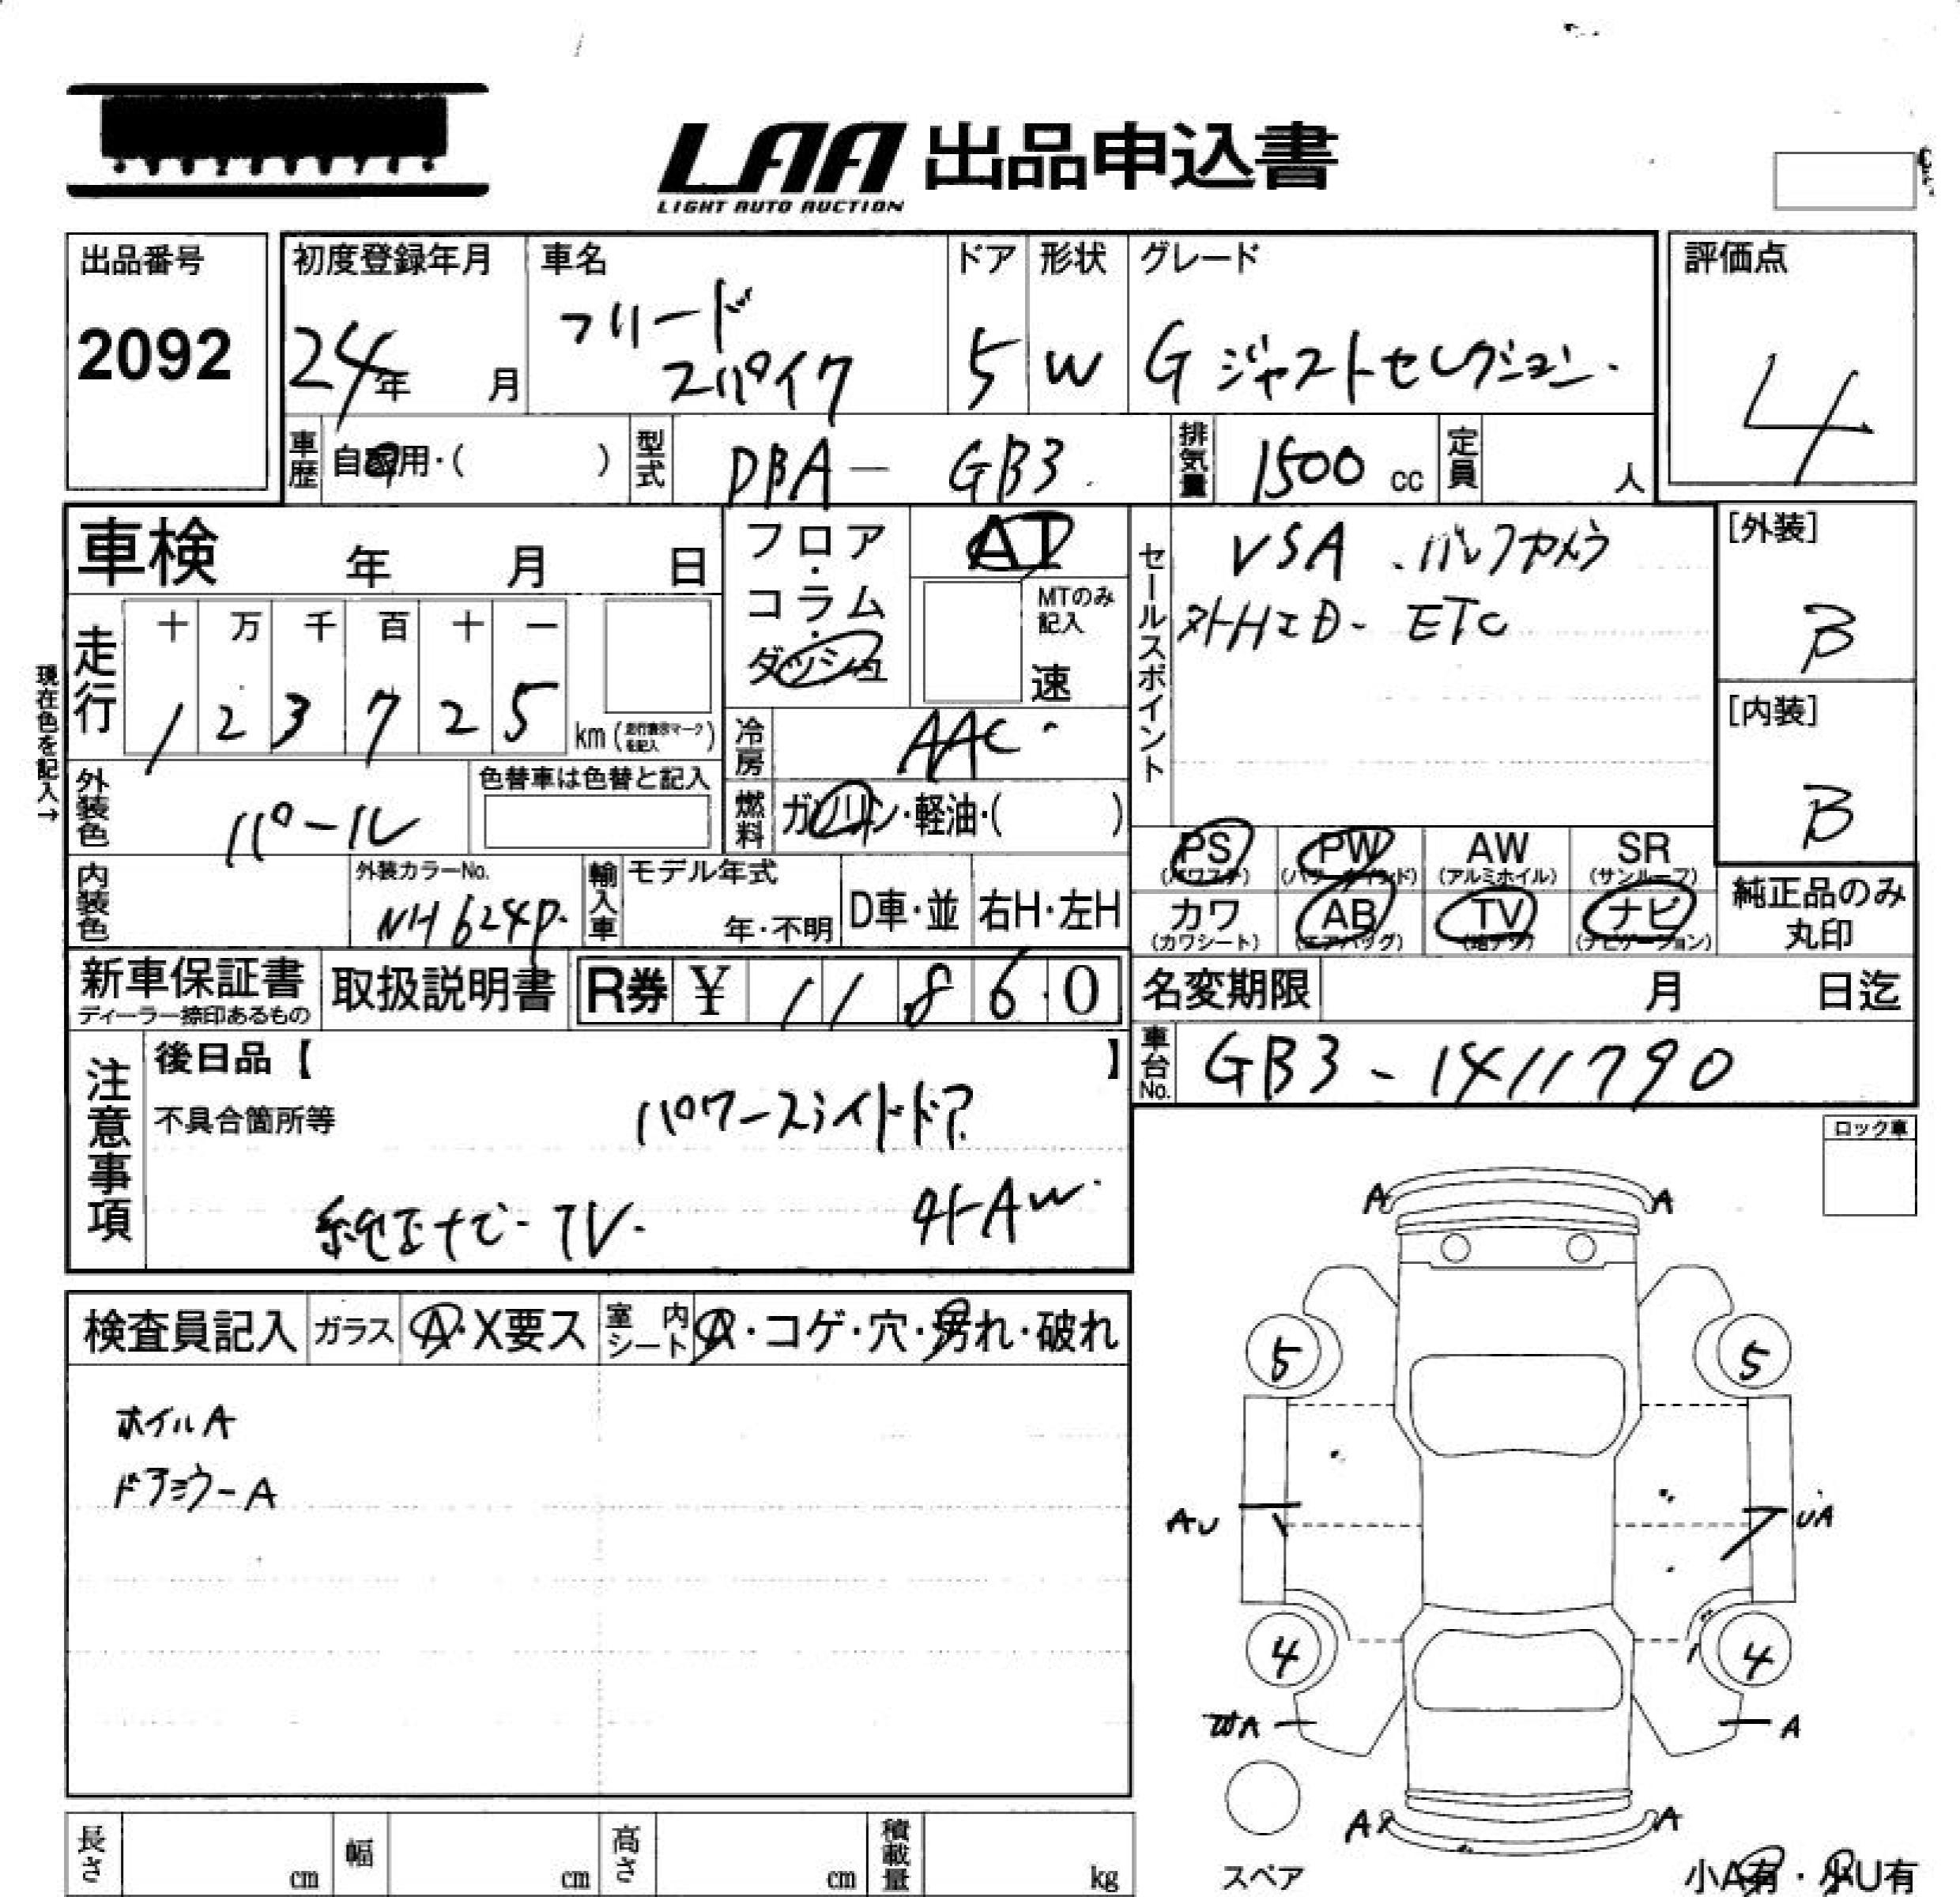 LAA 出品申込書
LIGHT AUTO AUCTION
出品番号
2092
初度登録年月
24年 月
車名
フリード
スパイク
ドア
5
形状
W
グレード
G ジャストセレクション.
評価点
4
車歴 自家用・( )
型式 DBA - GB3
排気量 1500 cc
定員 人
車検 年 月 日
フロア・コラム・ダッシュ
AT
MTのみ記入
速
セールスポイント
VSA . バックカメラ
外HID- ETC
[外装]
B
[内装]
B
現在色を記入→
走行
十 万 千 百 十 一
1 2 3 7 2 5
km (走行表示マークを記入)
冷房 AAC
燃料 ガソリン・軽油・( )
外装色 パール
色替車は色替と記入
内装色
外装カラーNo.
NH624P.
輸入車
モデル年式
年・不明
D車・並
右H・左H
PS (パワステ)
PW (パワーウインド)
AW (アルミホイル)
SR (サンルーフ)
カワ (カワシート)
AB (エアバッグ)
TV (地デジ)
ナビ (ナビゲーション)
純正品のみ
丸印
新車保証書
ディーラー捺印あるもの
取扱説明書
R券 ¥ 11860
名変期限 月 日迄
車台No. GB3-1411790
注意事項
後日品【 】
不具合箇所等
パワースライドドア
純正ナビ- TV.
外AW.
ロック車
検査員記入
ガラス A・X要ス
室内シート A・コゲ・穴・汚れ・破れ
ホイルA
ドアミラーA
A A
5 5
AU UA
4 4
A A
A A
スペア
小A有・小U有
長さ cm
幅 cm
高さ cm
積載量 kg